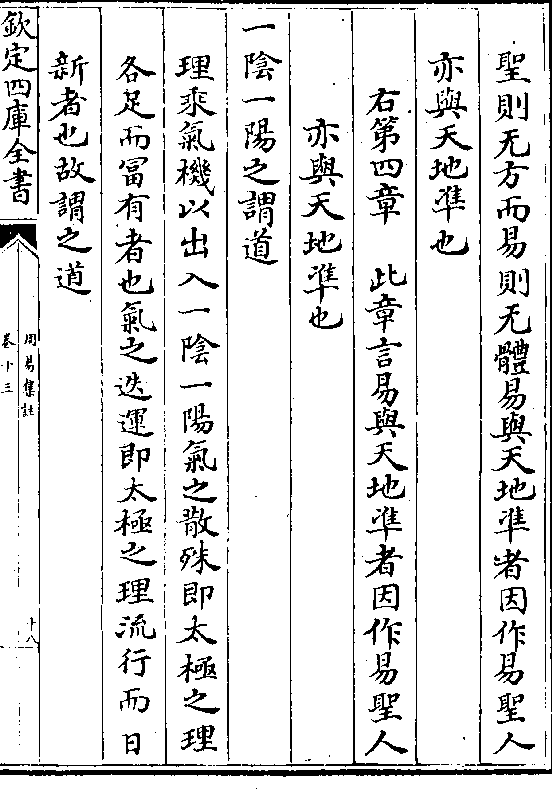 聖則无方而易則无體易與天地準者因作易聖人
亦與天地準也
右第四章　此章言易與天地準者因作易聖人
亦與天地準也
一陰一陽之謂道
理乘氣機以出入一陰一陽氣之散殊即太極之理
各足而冨有者也氣之迭運即太極之理流行而日
新者也故謂之道
欽定四庫全書
周易集註
卷十三
十八